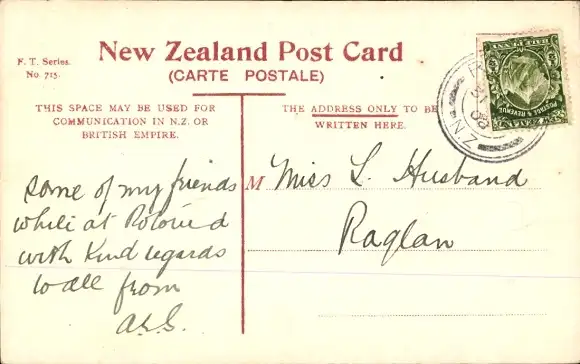 F. T. Series.
No. 715.
New Zealand Post Card
(CARTE POSTALE)
THIS SPACE MAY BE USED FOR
COMMUNICATION IN N.Z. OR
BRITISH EMPIRE.
THE ADDRESS ONLY TO BE
WRITTEN HERE.
some of my friends
while at
with Kind regards
to all from
M Miss L. Husband
Raglan
POSTAGE & REVENUE
N.Z